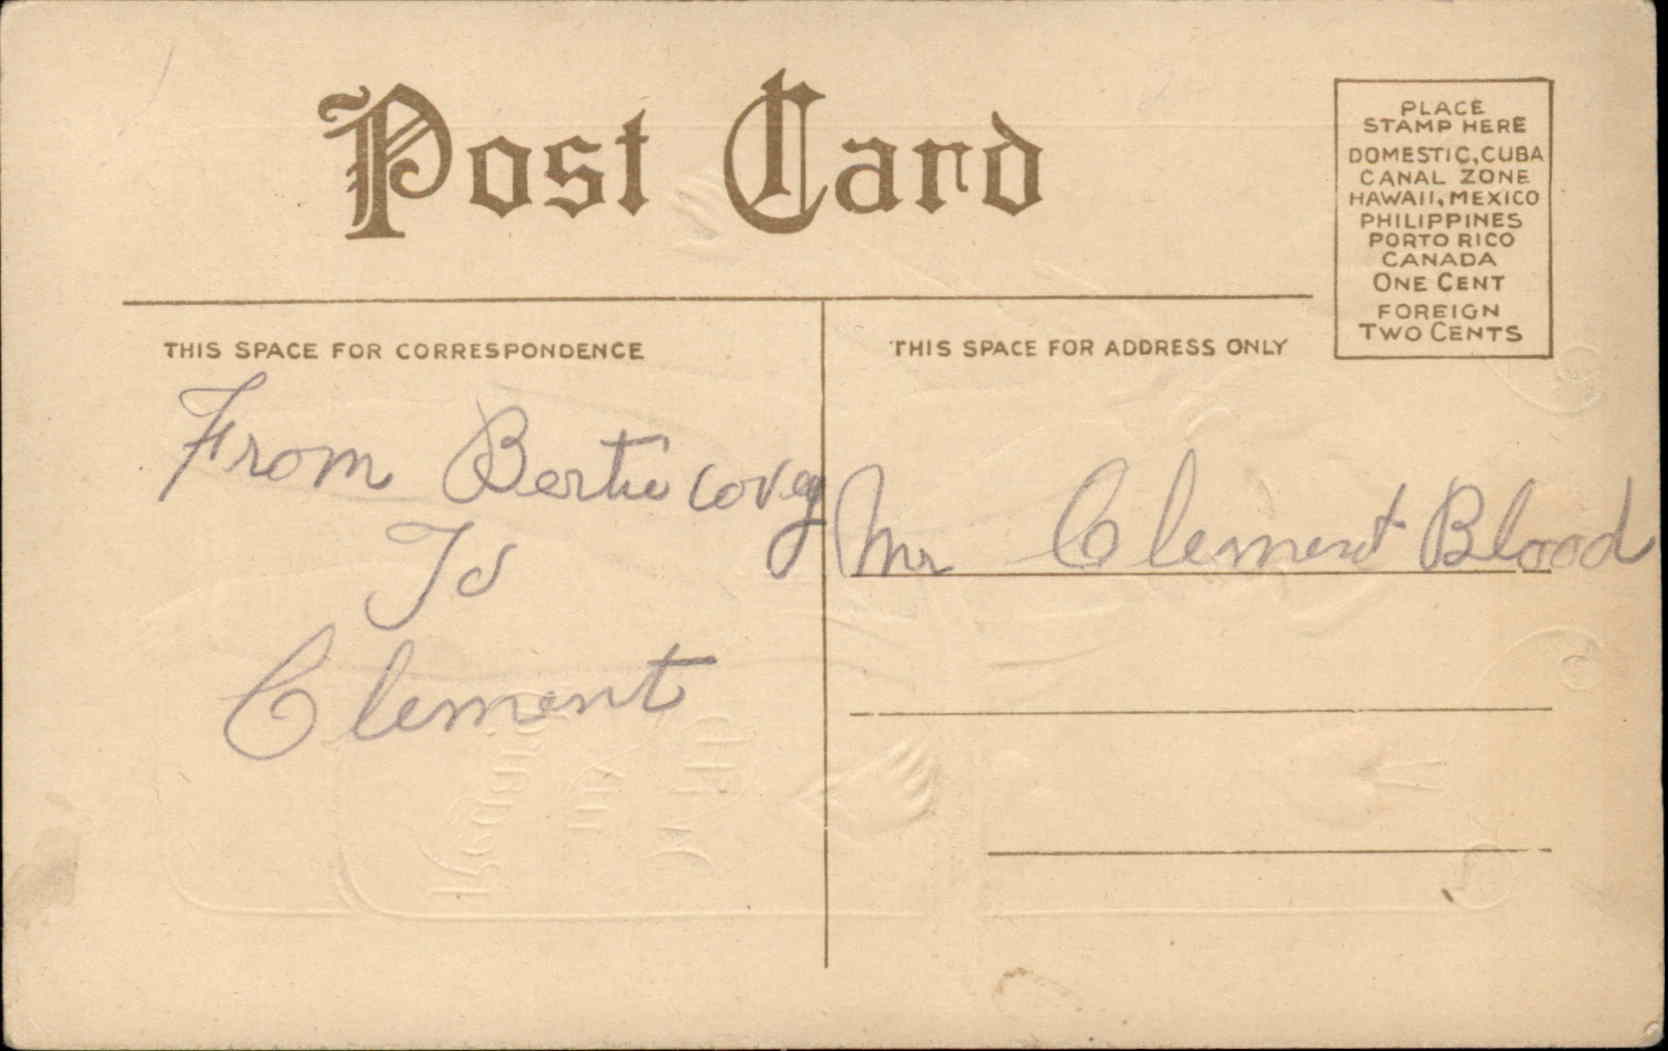 Post Card
PLACE
STAMP HERE
DOMESTIC, CUBA
CANAL ZONE
HAWAII, MEXICO
PHILIPPINES
PORTO RICO
CANADA
ONE CENT
FOREIGN
TWO CENTS
THIS SPACE FOR CORRESPONDENCE
THIS SPACE FOR ADDRESS ONLY
From Bertie Covey
To
Clement
Mr Clement Blood